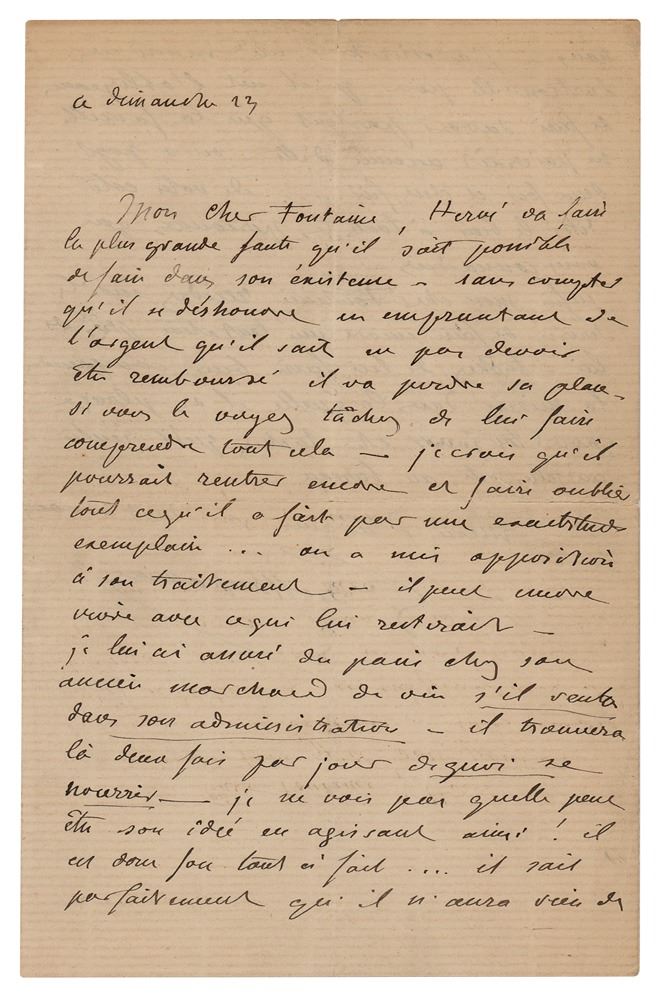 ce dimanche 23
Mon cher Fontaine, Hervé va faire
la plus grande faute qu'il soit possible
de faire dans son existence – sans compter
qu'il se déshonore en empruntant de
l'argent qu'il sait ne pas devoir
être remboursé il va perdre sa place –
si vous le voyez tâchez de lui faire
comprendre tout cela — je crois qu'il
pourrait rentrer encore et faire oublier
tout ce qu'il a fait par une exactitude
exemplaire ... on a mis opposition
à son traitement – il peut encore
vivre avec ce qui lui resterait —
je lui ai assuré du pain chez son
ancien marchand de vin s'il rentre
dans son administration – il trouvera
là deux fois par jour de quoi se
nourrir — je ne vois pas quelle peut
être son idée en agissant ainsi ! il
est donc fou tout à fait .... il sait
parfaitement qu'il n'aura rien de